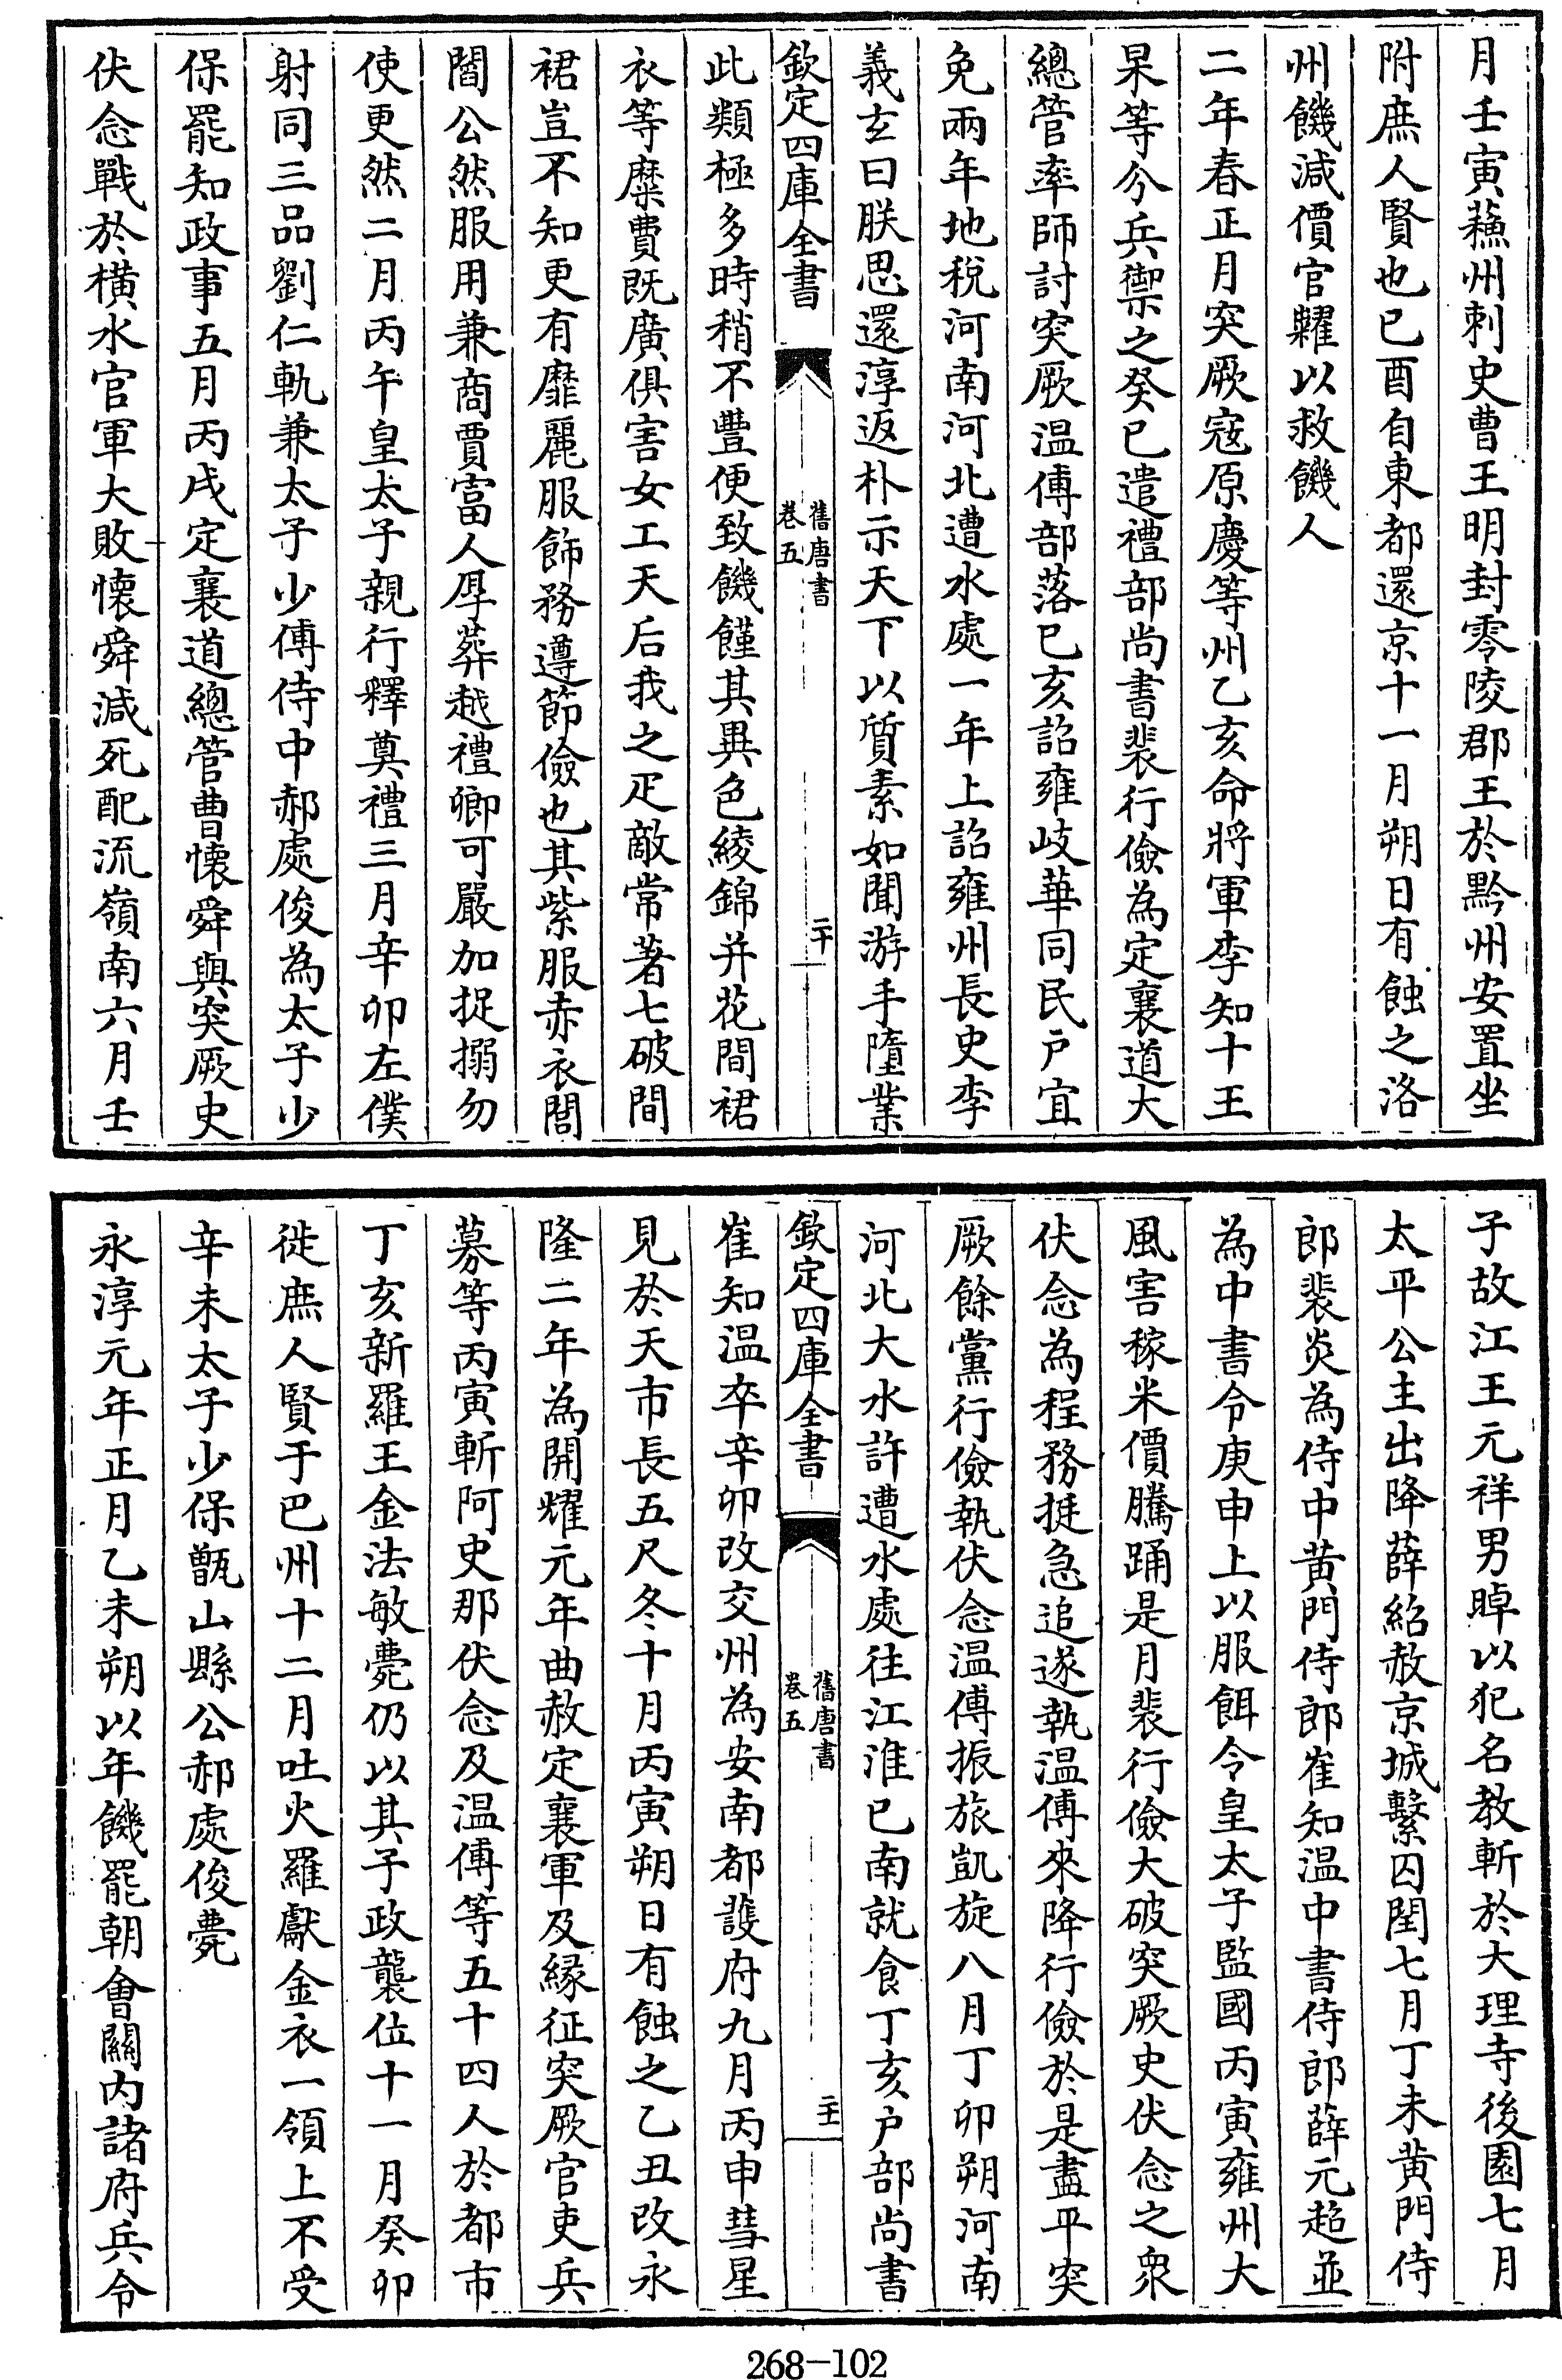 月壬寅蘓州刺史曹王明封零陵郡王於黔州安置坐
附庶人賢也已酉自東都還京十一月朔日有蝕之洛
州饑減價官糶以救饑人
二年春正月突厥寇原慶等州乙亥命將軍李知十王
杲等分兵禦之癸已遣禮部尚書裴行儉為定襄道大
總管率師討突厥温傅部落已亥詔雍岐華同民户宜
免兩年地税河南河北遭水處一年上詔雍州長史李
義玄曰朕思還淳返朴示天下以質素如聞游手隳業
欽定四庫全書
舊唐書
卷五
二十
此類極多時稍不豐便致饑饉其異色綾錦并花間裙
衣等糜費既廣俱害女工天后我之疋敵常著七破間
裙豈不知更有靡麗服飾務遵節儉也其紫服赤衣閭
閻公然服用兼商賈富人厚葬越禮卿可嚴加捉搦勿
使更然二月丙午皇太子親行釋奠禮三月辛卯左僕
射同三品劉仁軌兼太子少傅侍中郝處俊為太子少
保罷知政事五月丙戌定襄道總管曹懐舜與突厥史
伏念戰於橫水官軍大敗懐舜減死配流嶺南六月壬
子故江王元祥男晫以犯名教斬於大理寺後園七月
太平公主出降薛紹赦京城繫囚閏七月丁未黄門侍
郎裴炎為侍中黄門侍郎崔知温中書侍郎薛元超並
為中書令庚申上以服餌令皇太子監國丙寅雍州大
風害稼米價騰踊是月裴行儉大破突厥史伏念之衆
伏念為程務挺急追遂執温傅來降行儉於是盡平突
厥餘黨行儉執伏念温傅振旅凱旋八月丁卯朔河南
河北大水許遭水處往江淮已南就食丁亥户部尚書
欽定四庫全書
舊唐書
卷五
二十一
崔知温卒辛卯改交州為安南都護府九月丙申彗星
見於天市長五尺冬十月丙寅朔日有蝕之乙丑改永
隆二年為開耀元年曲赦定襄軍及緣征突厥官吏兵
募等丙寅斬阿史那伏念及温傅等五十四人於都市
丁亥新羅王金法敏薨仍以其子政襲位十一月癸卯
徙庶人賢于巴州十二月吐火羅獻金衣一領上不受
辛未太子少保甑山縣公郝處俊薨
永淳元年正月乙未朔以年饑罷朝會關内諸府兵令
268-102